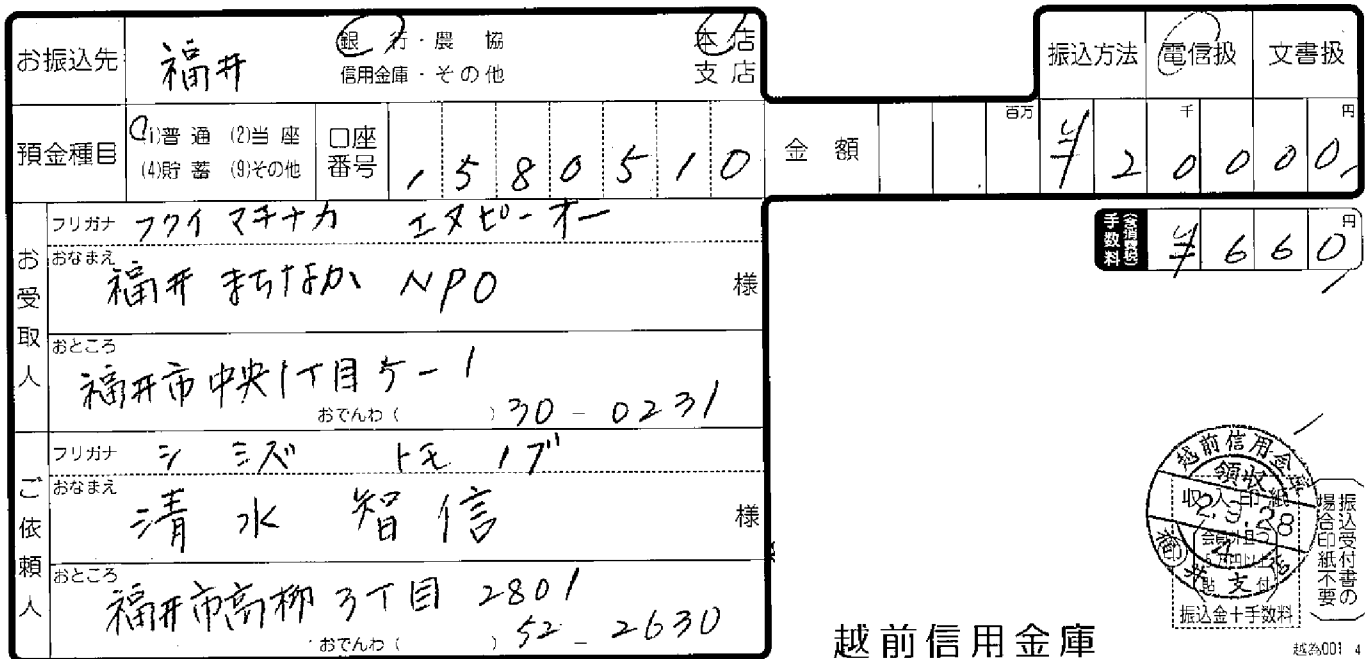 お振込先 福井 銀行・農協 本店
信用金庫・その他 支店
振込方法 電信扱 文書扱
預金種目 (1)普通 (2)当座
(4)貯蓄 (9)その他
口座番号 1580510
金額 百万 千 円
¥20000,
手数料 (含消費税) 円
¥660
お受取人
フリガナ フクイ マチナカ エヌピーオー
おなまえ 福井 まちなか NPO 様
おところ 福井市中央1丁目5-1
おでんわ ( ) 30-0231
ご依頼人
フリガナ シミズ トモノブ
おなまえ 清水 智信 様
おところ 福井市高柳3丁目2801
おでんわ ( ) 52-2630
越前信用金庫
領収
収入印紙
2.9.28
支
貼付
振込金+手数料
振込受付書の
場合印紙不要
越前信用金庫
越為001 4